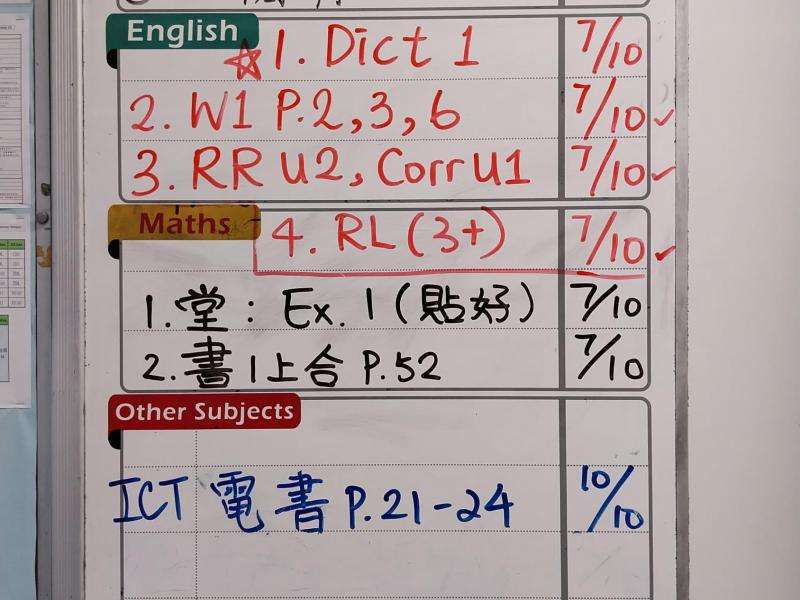 English
☆ 1. Dict 1 7/10
2. W1 P.2, 3, 6 7/10 ✓
3. RR U2, Corr U1 7/10 ✓
Maths
4. RL (3+) 7/10 ✓
1. 堂: Ex. 1 (貼好) 7/10
2. 書1上合 P.52 7/10
Other Subjects
ICT 電書 P.21-24 10/10